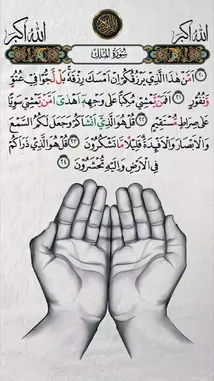 الله اكبر
الله اكبر
سُورَةُ الْمُلْكِ
٢٠ اَمَّنْ هٰذَا الَّذِي يَرْزُقُكُمْ اِنْ اَمْسَكَ رِزْقَهُ بَلْ لَجُّوا فِي عُتُوٍّ
وَنُفُورٍ ٢١ اَفَمَنْ يَمْشِي مُكِبًّا عَلٰى وَجْهِهِ اَهْدٰى اَمَّنْ يَمْشِي سَوِيًّا
عَلٰى صِرَاطٍ مُسْتَقِيمٍ ٢٢ قُلْ هُوَ الَّذِي اَنْشَاَكُمْ وَجَعَلَ لَكُمُ السَّمْعَ
وَالْاَبْصَارَ وَالْاَفْئِدَةَ قَلِيلًا مَا تَشْكُرُونَ ٢٣ قُلْ هُوَ الَّذِي ذَرَاَكُمْ
فِي الْاَرْضِ وَاِلَيْهِ تُحْشَرُونَ
٢٤